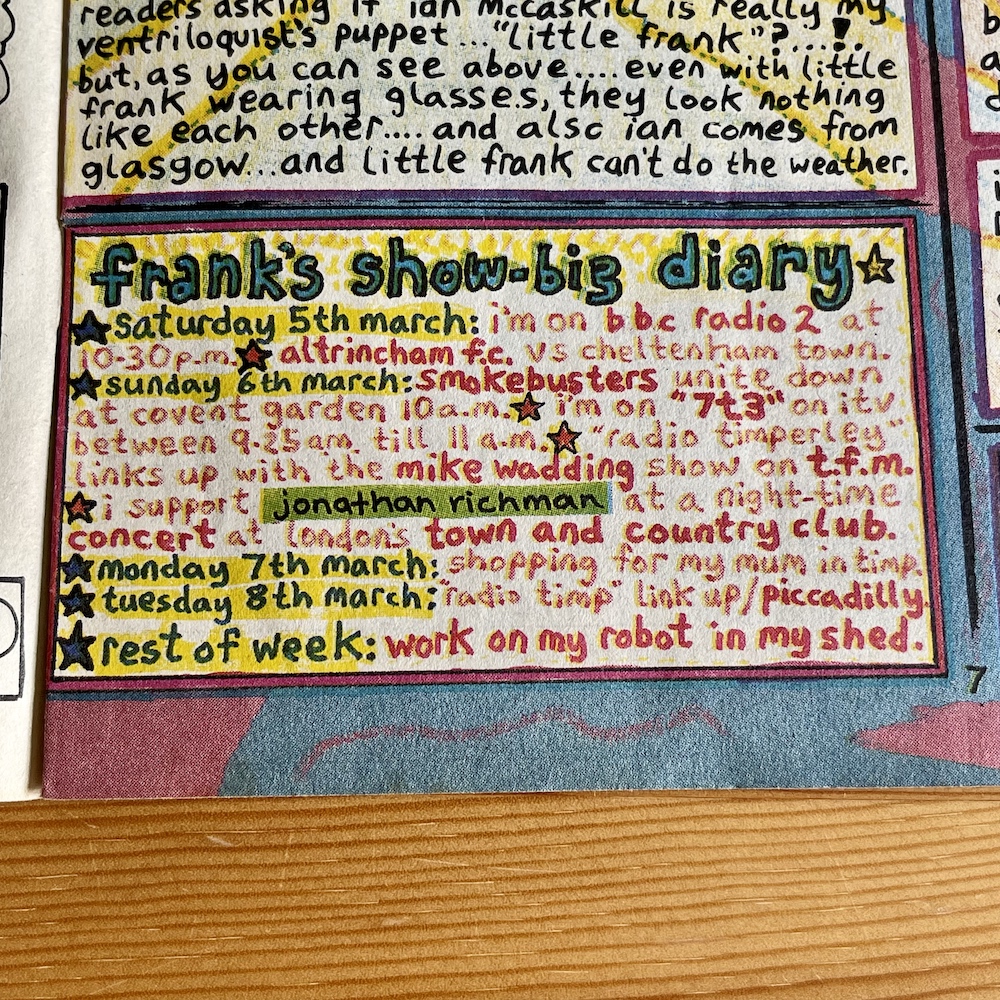 readers asking if ian mccaskill is really my
ventriloquist's puppet..."little frank"?...!
but, as you can see above....even with little
frank wearing glasses, they look nothing
like each other.... and also ian comes from
glasgow...and little frank can't do the weather.
frank's show-biz diary
saturday 5th march: i'm on bbc radio 2 at
10-30p.m. altrincham f.c. vs cheltenham town.
sunday 6th march: smokebusters unite down
at covent garden 10a.m. i'm on "7t3" on itv
between 9.25am till 11a.m. "radio timperley"
links up with the mike wadding show on t.f.m.
i support jonathan richman at a night-time
concert at london's town and country club.
monday 7th march: shopping for my mum in timp.
tuesday 8th march: "radio timp" link up/piccadilly.
rest of week: work on my robot in my shed.
7